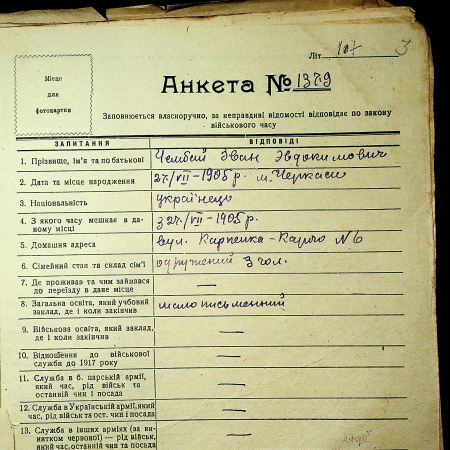 Літ. 107 3
Місце
для
фотокартки
Анкета № 1379
Заповнюється власноручно, за неправдиві відомості відповідає по закону
військового часу
ЗАПИТАННЯ ВІДПОВІДІ
1. Прізвище, ім'я та по батькові Чембай Эван Эвдокимович
2. Дата та місце народження 27/VII-1905 р. м. Черкаси
3. Національність українець
4. З якого часу мешкає в да-
ному місці з 27/VII-1905 р.
5. Домашня адреса вул. Карпенка-Карго N 6
6. Сімейний стан та склад сім'ї одружений 3 чол.
7. Де проживав та чим займався
до переїзду в дане місце —
8. Загальна освіта, який учбовий
заклад, де і коли закінчив малописьменний
9. Військова освіта, який заклад,
де і коли закінчив —
10. Відношення до військової
служби до 1917 року —
11. Служба в б. царській армії,
який час, рід військ та
останній чин і посада —
12. Служба в Українській армії, який
час, рід військ та ост. чин і посада —
13. Служба в інших арміях (за ви-
нятком червоної) — рід військ,
який час, останній чин та посада —